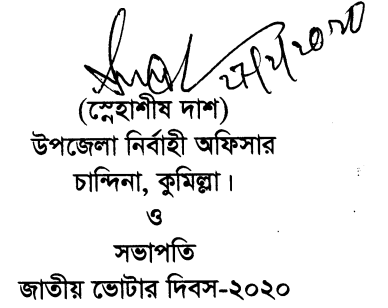 (স্নেহাশীষ দাশ)
উপজেলা নির্বাহী অফিসার
চান্দিনা, কুমিল্লা।
ও
সভাপতি
জাতীয় ভোটার দিবস-২০২০